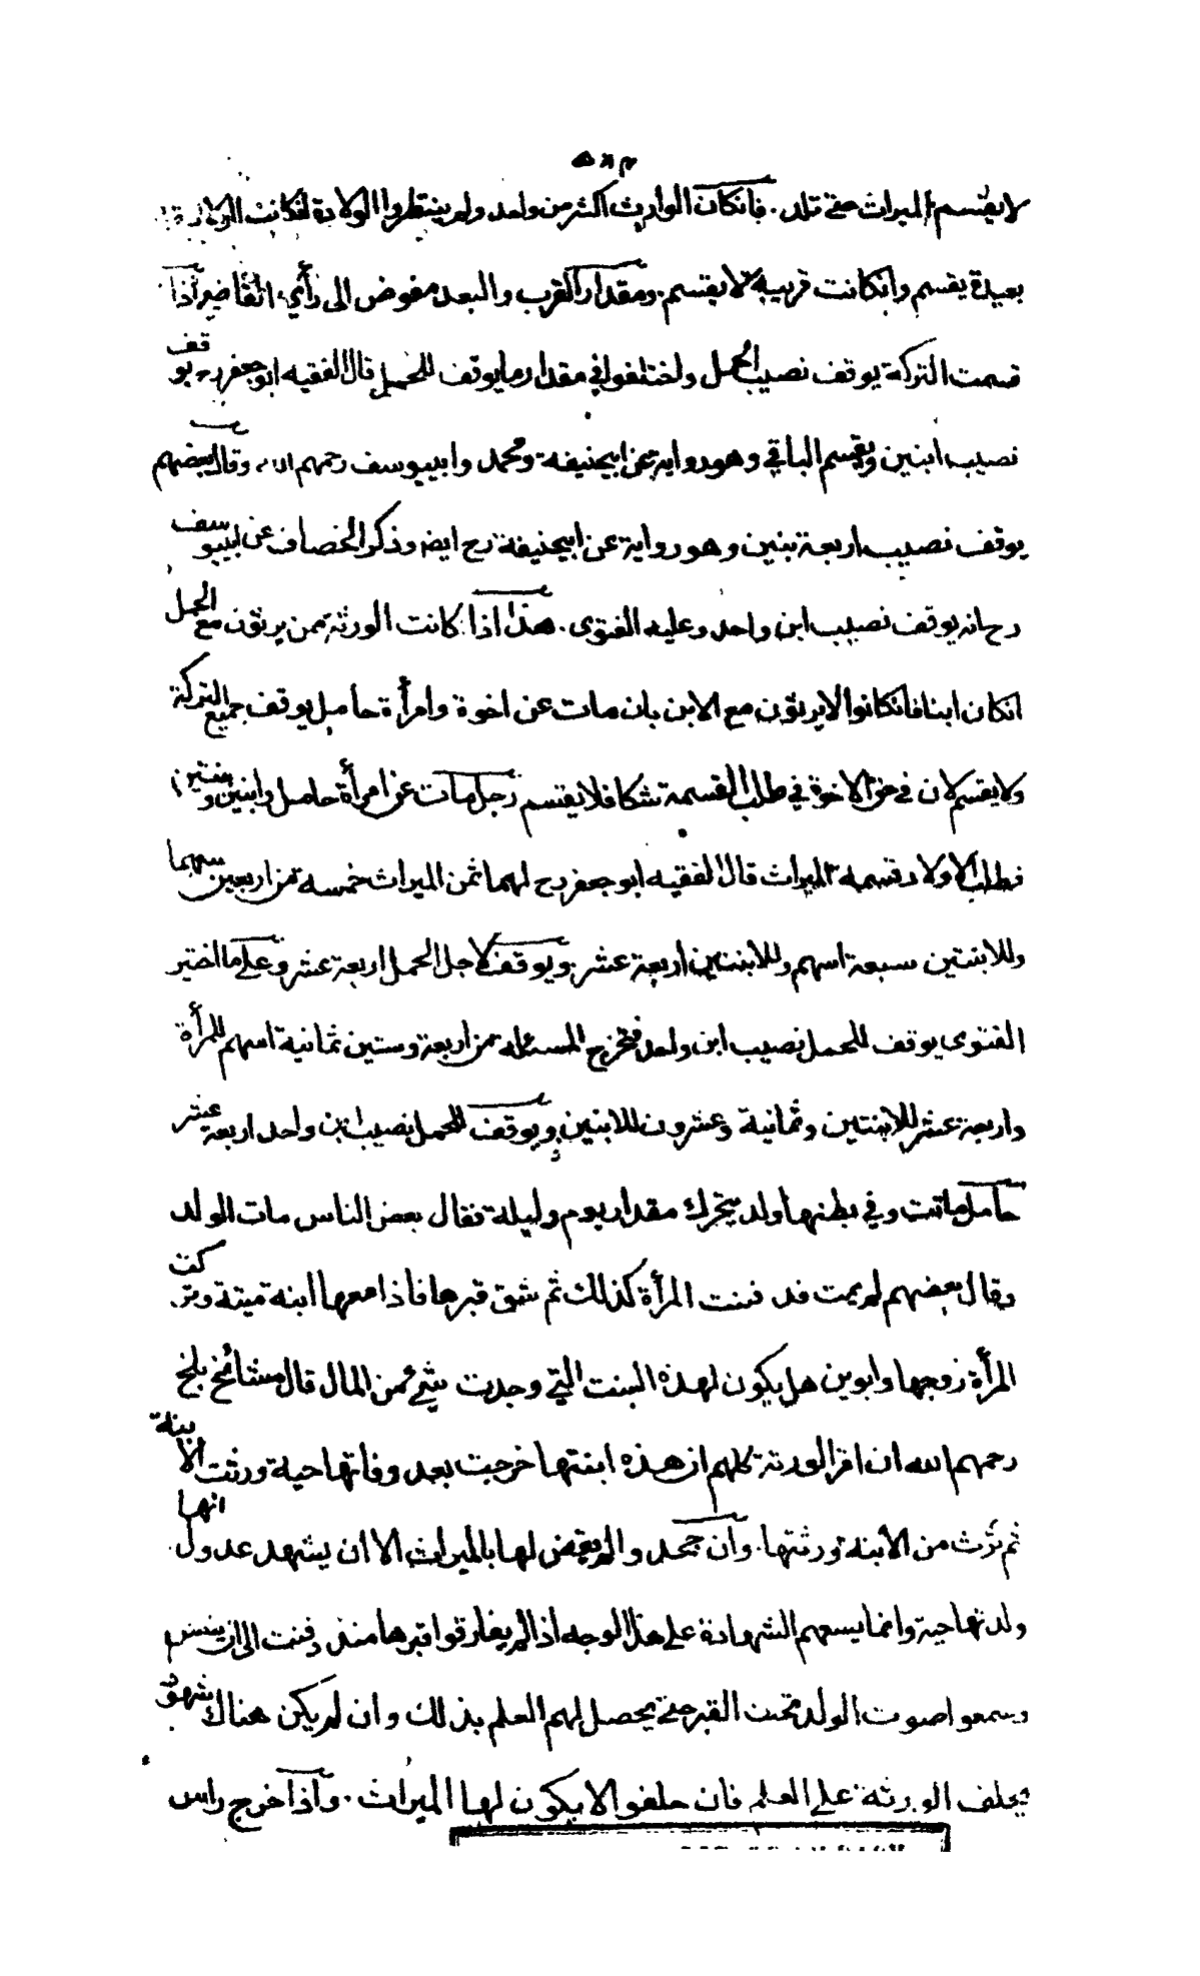 ٥٨٣
لا يقتسم الميراث حتى تلد . فانكان الوارث اكثر من واحد ولم ينتظروا الولادة لفكانت الولادة
بعيدة يقسم وانكانت قريبة لا يقتسم . ومقدار القرب والبعد مفوض الى رأي القاضي واذا
قسمت التركة يوقف نصيب الحمل واختلفوا في مقدار ما يوقف للحمل قال الفقيه ابو جعفر رح يوقف
نصيب ابنين ويقسم الباقي وهو رواية عن ابيحنيفة ومحمد وابييوسف رحمهم الله وقال بعضهم
يوقف نصيب اربعة بنين وهو رواية عن ابيحنيفة رح ايض وذكر الخصاف عن ابييوسف
رح انه يوقف نصيب ابن واحد وعليه الفتوى . هذا اذا كانت الورثة ممن يرثون مع الحمل
انكان ابنا فانكانوا لا يرثون مع الابن بان مات عن اخوة وامرأة حامل يوقف جميع التركة
ولا يقسم لان في حق الاخوة في طلب القسمة شكا فلا يقتسم رجل مات عن امرأة حامل وابنين وبنتين
فطلب الاولاد قسمة الميراث قال الفقيه ابو جعفر رح لهما ثمن الميراث خمسة من اربعين سهما
وللابنتين سبعة اسهم وللابنين اربعة عشر ويوقف لاجل الحمل اربعة عشر وعلى ما اختير
الفتوى يوقف للحمل نصيب ابن واحد فتخرج المسئلة من اربعة وستين ثمانية اسهم للمرأة
واربعة عشر للابنتين وثمانية وعشرون للابنين ويوقف للحمل نصيب ابن واحد اربعة عشر
حامل ماتت وفي بطنها ولد يتحرك مقدار يوم وليلة فقال بعض الناس مات الولد
وقال بعضهم لم يمت فدفنت المرأة كذلك ثم شق قبرها فاذا معها ابنة ميتة وتركت
المرأة زوجها وابوين هل يكون لهذه البنت التي وجدت شئ من المال قال مشائخ بلخ
رحمهم الله ان اقر الورثة كلهم ان هذه ابنتها خرجت بعد وفاتها حية ورثت الابنة
ثم ترث من الابنة ورثتها . وان جحدوا لم يقض لها بالميراث الا ان يشهد عدول انها
ولدتها حية وانما يسعهم الشهادة على هذا الوجه اذا لم يفارقوا قبرها منذ دفنت الى ان ينبش
وسمعوا صوت الولد تحت القبر حتى يحصل لهم العلم بذلك وان لم يكن هناك شهود
يحلف الورثة على العلم فان حلفوا لا يكون لها الميراث . واذا خرج راس